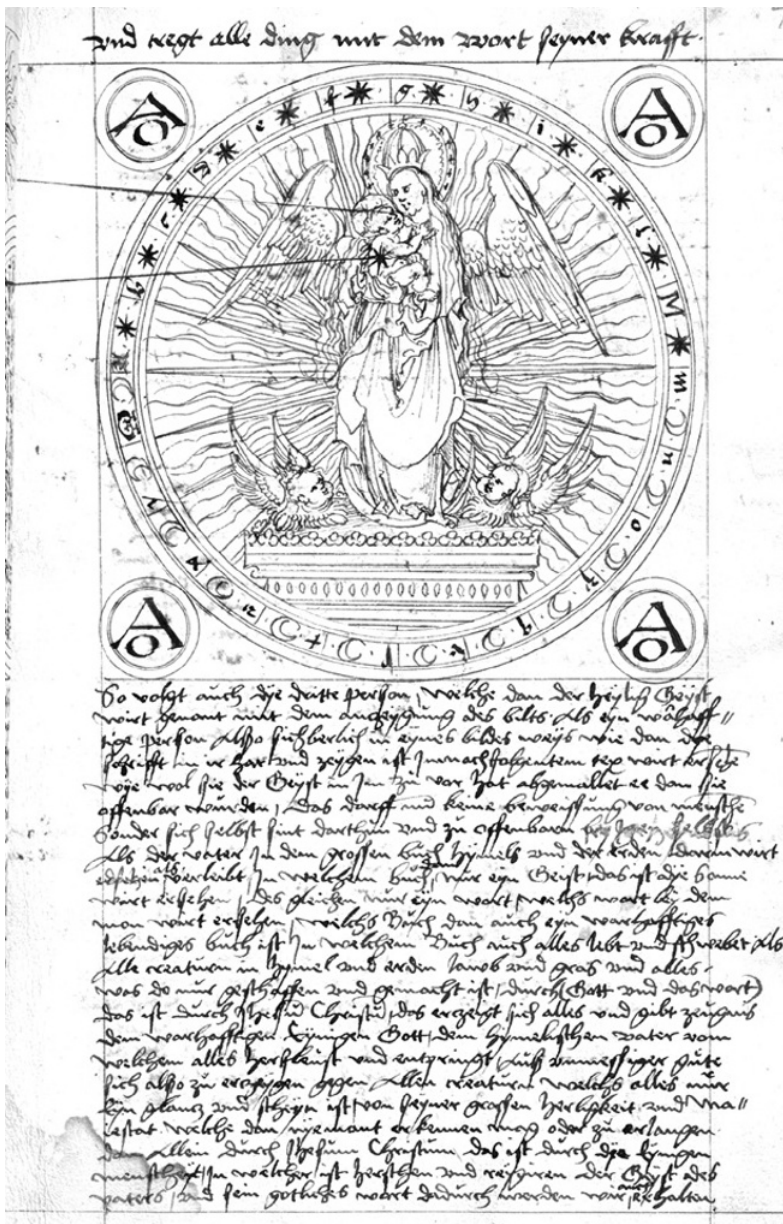 vnd tregt alle ding mit dem wort seyner krafft.
A O
A O
a b c d e f g h i k l M
m n o p q r s t v x y z
A O
A O
So volgt auch dye dritte person, welche dan der heylig Geyst
wirt genant mit dem anzeygung des bilts. Als eyn wahaff=
tige person Also sichberlich in eynes bildes weys wie dan dye
schrifft in ir hat vnd zeygen ist Inn nachfolgentem tex wirt
wye wol sie der Geyst in zu vor hat abgemallet ee dan sie
offenbar wurden, das darff keine beweissung von mensche
Sonder sich selbst sint darthun vnd zu offenbaren
Als der vater In dem grossen buch hymels vnd der erden darin wirt
als verleibt, In welchem buch nur eyn Geist, das ist dye Sonne
wirt ersehen, des gleichen nur eyn wort, welchs wort bey dem
mon wirt ersehen, welchs Buch dan auch eyn warhafftiges
lebendiges buch ist In welchem Buch auch alles lebt vnd schwebet Als
Alle creaturn in hymel vnd erden laub vnd gras vnd alles.
was do nur geschaffen vnd gemacht ist, durch (Gott vnd das wort)
das ist durch Jhesu Christu, das erzeygt sich alles vnd gibt zeugnis
dem warhafftigen Eynigen Gott, dem hymelischen vater vom
welchem alles herfleust vnd entspringt, Auß vnmessiger gute
sich also zu erzeygen gegen Allen creaturn welchs alles nur
Eyn glancz vnd scheyn ist, von seyner grossen herligkeit vnd Ma=
iestat. welche dan nyemant erkennen mag oder zu erlangen
dan Allein durch Jhesum Christum, das ist durch dye Eynigen
menscheit, In welcher ist herschen vnd regiren der Geyst des
vaters, vnd sein gotliches wort dadurch werden erhalten